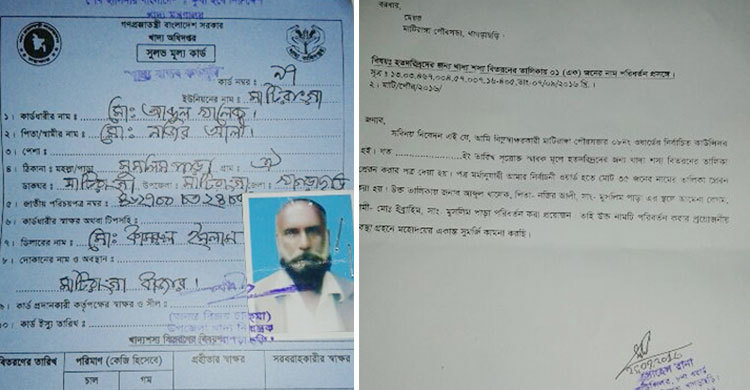 গণপ্রজাতন্ত্রী বাংলাদেশ সরকার
খাদ্য অধিদপ্তর
সুলভ মূল্য কার্ড
কার্ড নম্বর ঃ ৯৭
ইউনিয়নের নাম ঃ মাটিরাঙ্গা
১। কার্ডধারীর নাম ঃ মোঃ আব্দুল খালেক।
২। পিতা/স্বামীর নাম ঃ মোঃ নজির আলী।
৩। পেশা ঃ
৪। ঠিকানা ঃ মহল্লা/পাড়া মুসলিম পাড়া গ্রাম ঐ
ডাকঘর মাটিরাঙ্গা উপজেলা মাটিরাঙ্গা জেলা খাগড়াছড়ি
৫। জাতীয় পরিচয়পত্র নম্বর ঃ
৬। কার্ডধারীর স্বাক্ষর অথবা টিপসহি ঃ
৭। ডিলারের নাম ঃ মোঃ কামরুল ইসলাম
৮। দোকানের নাম ও অবস্থান ঃ
মাটিরাঙ্গা বাজার।
৯। কার্ড প্রদানকারী কর্তৃপক্ষের স্বাক্ষর ও সীল ঃ
১০। কার্ড ইস্যু তারিখ ঃ
উপজেলা খাদ্য নিয়ন্ত্রক
খাদ্যশস্য বিতরণের বিবরণ
বিতরণের তারিখ পরিমাণ (কেজি হিসেবে) গ্রহীতার স্বাক্ষর সরবরাহকারীর স্বাক্ষর
চাল গম
বরাবর,
মেয়র
মাটিরাঙ্গা পৌরসভা, খাগড়াছড়ি।
বিষয়ঃ হতদরিদ্রদের জন্য খাদ্য শস্য বিতরনের তালিকায় ০১ (এক) জনের নাম পরিবর্তন প্রসঙ্গে।
সূত্র ঃ ১৩.০৩.৪৬৭.০০৪.৫৭.০০৭.১৬-৪০৫,তাং-০৭/০৯/২০১৬ খ্রি.।
২। মাট/পৌর/২০১৬/
জনাব,
সবিনয় নিবেদন এই যে, আমি নিম্নস্বাক্ষরকারী মাটিরাঙ্গা পৌরসভার ০৮নং ওয়ার্ডের নির্বাচিত কাউন্সিলর
হই। যত ইং তারিখ সূত্রোক্ত স্মারক মূলে হতদরিদ্রদের জন্য খাদ্য শস্য বিতরনের তালিকা
প্রেরন করার পত্র দেয়া হয়। পত্র মর্মানুযায়ী আমার নির্বাচনী ওয়ার্ড হতে মোট ৩৫ জনের নামের তালিকা প্রেরন
করা হয়। উক্ত তালিকায় জনাব আবদুল খালেক, পিতা- নজির আলী, সাং- মুসলিম পাড়া এর স্থলে আমেনা বেগম,
স্বামী- মোঃ ইব্রাহিম, সাং- মুসলিম পাড়া পরিবর্তন করা প্রয়োজন। তাই উক্ত নামটি পরিবর্তন করার প্রয়োজনীয়
ব্যবস্থা গ্রহনে মহোদয়ের একান্ত সুমর্জি কামনা করছি।
২৫/০৯/২০১৬
সোহেল রানা